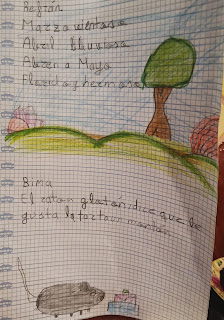 Refrán
Marzo ventoso
Abril lluvioso
Hacen a Mayo
Florido y hermoso
Rima
El raton gloton dice que le
gusta la torta un monton